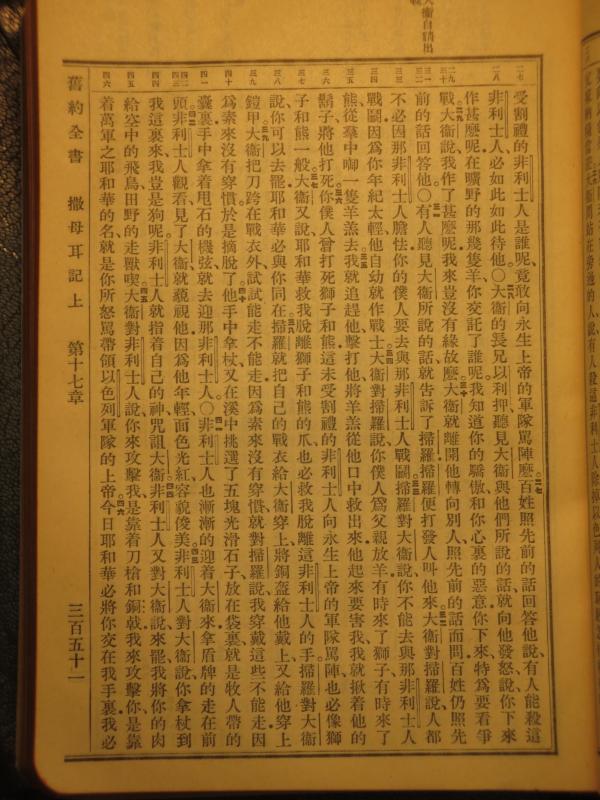 受割禮的非利士人是誰呢、竟敢向永生上帝的軍隊罵陣麼百姓照先前的話回答他說有人能殺這
非利士人必如此如此待他〇大衛的長兄以利押聽見大衛與他們所說的話就向他發怒說你下來
作甚麼呢在曠野的那幾隻羊你交託了誰呢我知道你的驕傲和你心裏的惡意你下來特爲要看爭
戰大衛說我作了甚麼呢我來豈沒有緣故麼大衛就離開他轉向別人照先前的話而問百姓仍照先
前的話回答他〇有人聽見大衛所說的話就告訴了掃羅掃羅便打發人叫他來大衛對掃羅說人都
不必因那非利士人膽怯你的僕人要去與那非利士人戰鬭掃羅對大衛說你不能去與那非利士人
戰鬭因爲你年紀太輕他自幼就作戰士大衛對掃羅說你僕人爲父親放羊有時來了獅子有時來了
熊從羣中啣一隻羊羔去我就追趕他擊打他將羊羔從他口中救出來他起來要害我我就揪着他的
鬍子將他打死你僕人曾打死獅子和熊這未受割禮的非利士人向永生上帝的軍隊罵陣也必像獅
子和熊一般大衛又說耶和華救我脫離獅子和熊的爪也必救我脫離這非利士人的手掃羅對大衛
說你可以去罷耶和華必與你同在掃羅就把自己的戰衣給大衛穿上將銅盔給他戴上又給他穿上
鎧甲大衛把刀跨在戰衣外試試能走不能走因爲素來沒有穿慣就對掃羅說我穿戴這些不能走因
爲素來沒有穿慣於是摘脫了他手中拿杖又在溪中挑選了五塊光滑石子放在袋裏就是牧人帶的
囊裏手中拿着甩石的機弦就去迎那非利士人〇非利士人也漸漸的迎着大衛來拿盾牌的走在前
頭非利士人觀看見了大衛就藐視他因爲他年輕面色光紅容貌俊美非利士人對大衛說你拿杖到
我這裏來我豈是狗呢非利士人就指着自己的神咒詛大衛非利士人又對大衛說來罷我將你的肉
給空中的飛鳥田野的走獸喫大衛對非利士人說你來攻擊我是靠着刀槍和銅戟我來攻擊你是靠
着萬軍之耶和華的名就是你所怒罵帶領以色列軍隊的上帝今日耶和華必將你交在我手裏我必
舊約全書 撒母耳記上 第十七章 三百五十一